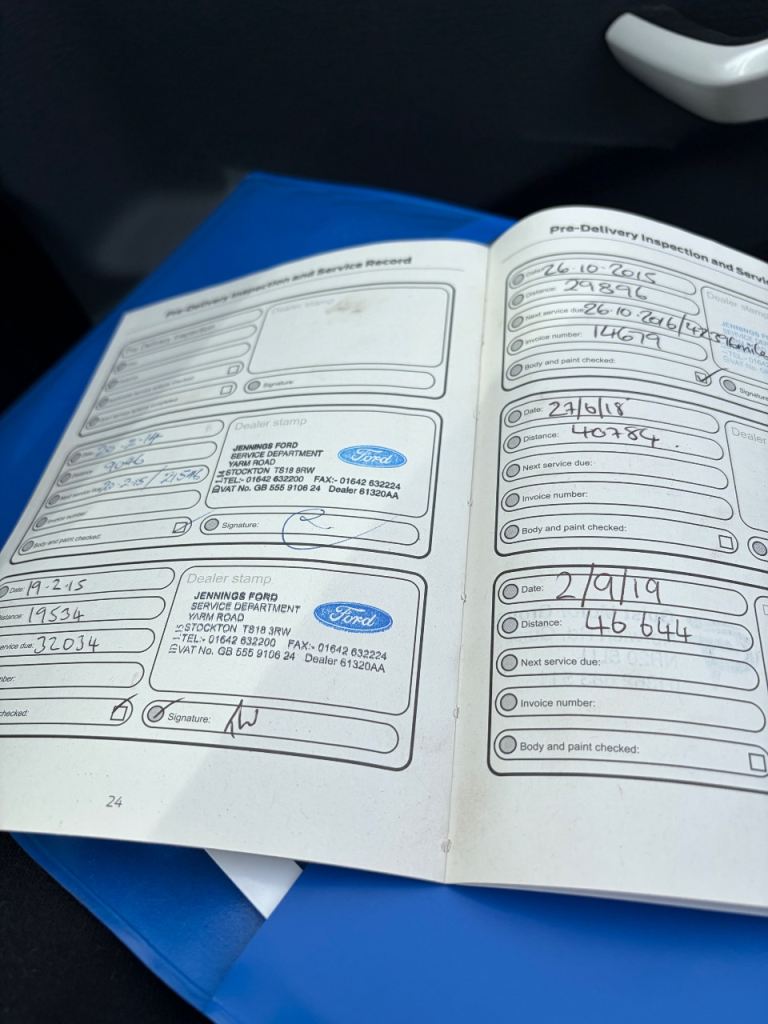 Pre-Delivery Inspection and Service Record
Pre Delivery Inspection
Dealer stamp
Signature
20-2-14
9046
20-2-15 / 21546
Invoice number:
Body and paint checked:
Dealer stamp
JENNINGS FORD
SERVICE DEPARTMENT
YARM ROAD
STOCKTON TS18 8RW
TEL:- 01642 632200 FAX:- 01642 632224
VAT No. GB 555 9106 24 Dealer 61320AA
Ford
Signature:
Date: 19-2-15
stance: 19534
ervice due: 32034
mber:
checked:
Dealer stamp
JENNINGS FORD
SERVICE DEPARTMENT
YARM ROAD
STOCKTON TS18 3RW
TEL:- 01642 632200 FAX:- 01642 632224
VAT No. GB 555 9106 24 Dealer 61320AA
Ford
Signature:
24
Pre-Delivery Inspection and Servi
Date: 26.10.2015
Distance: 29896
Next service due: 26.10.2016/42396mile
Invoice number: 14679
Body and paint checked:
Dealer stamp
JENNINGS F
Signature
Date: 27/6/18
Distance: 40784
Next service due:
Invoice number:
Body and paint checked:
Dealer
Date: 2/9/19
Distance: 46644
Next service due:
Invoice number:
Body and paint checked: